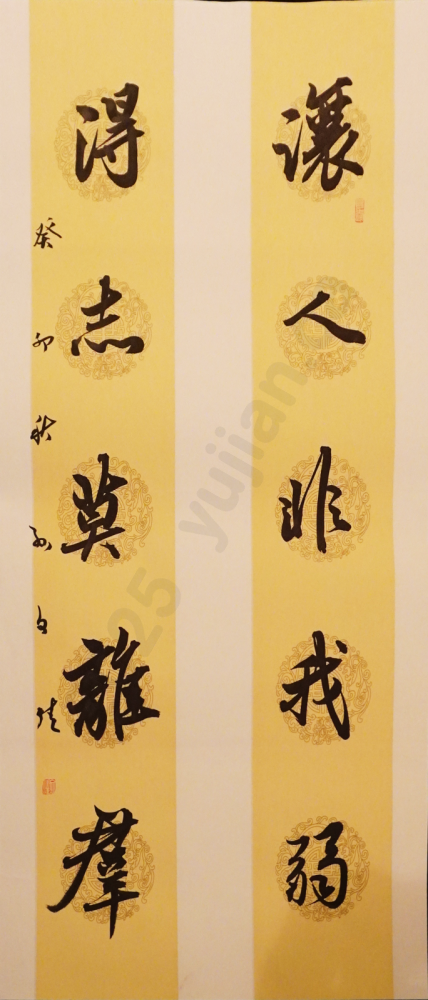 讓人非我弱
得志莫離羣
癸卯秋
25 yujian